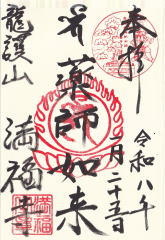 奉拝
令和八年
月二十五日
薬師如来
龍護山
満福寺
満福寺